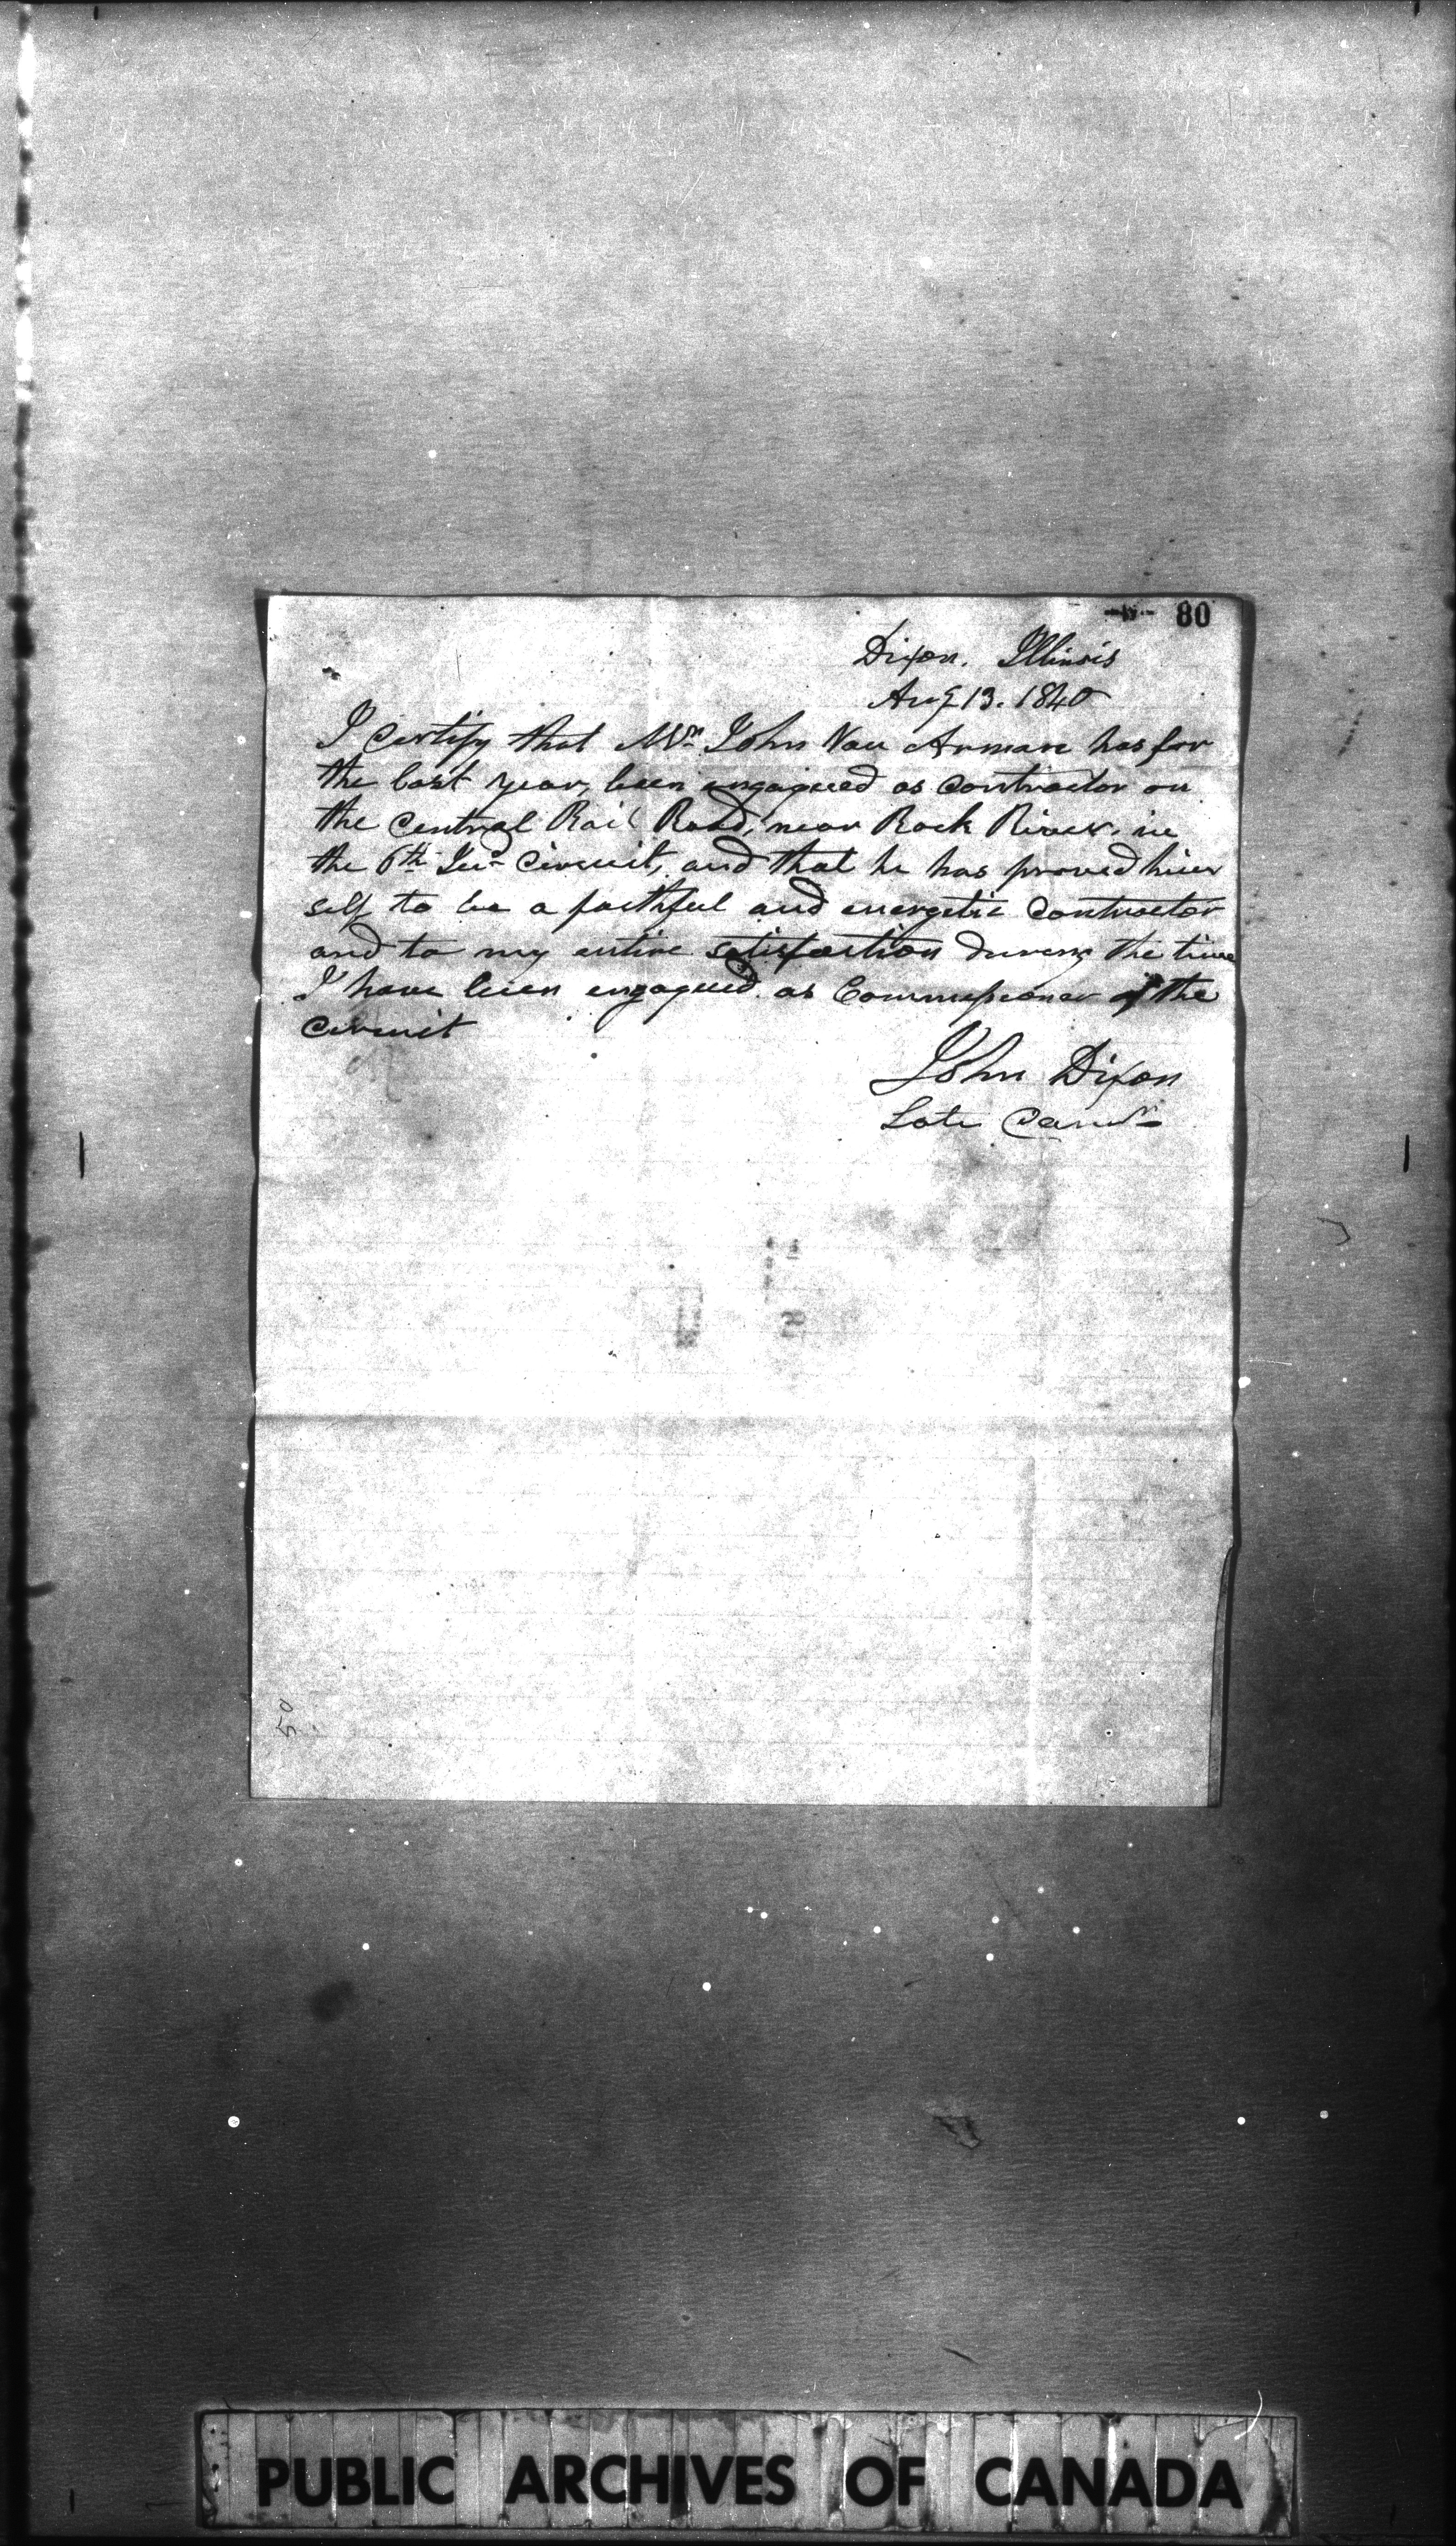 80
Dixon. Illinois
Aug 13. 1840
I certify that Mr. John Van Arman has for
the last year, been engagued as contractor on
the Central Rail Road, near Rock River. in
the 6th Jud. Circuit, and that he has proved him
self to be a faithful and energetic Contractor
and to my entire satisfaction during the time
I have been engagued as Commissioner of the
Circuit
John Dixon
Late Comr.
50
PUBLIC ARCHIVES OF CANADA